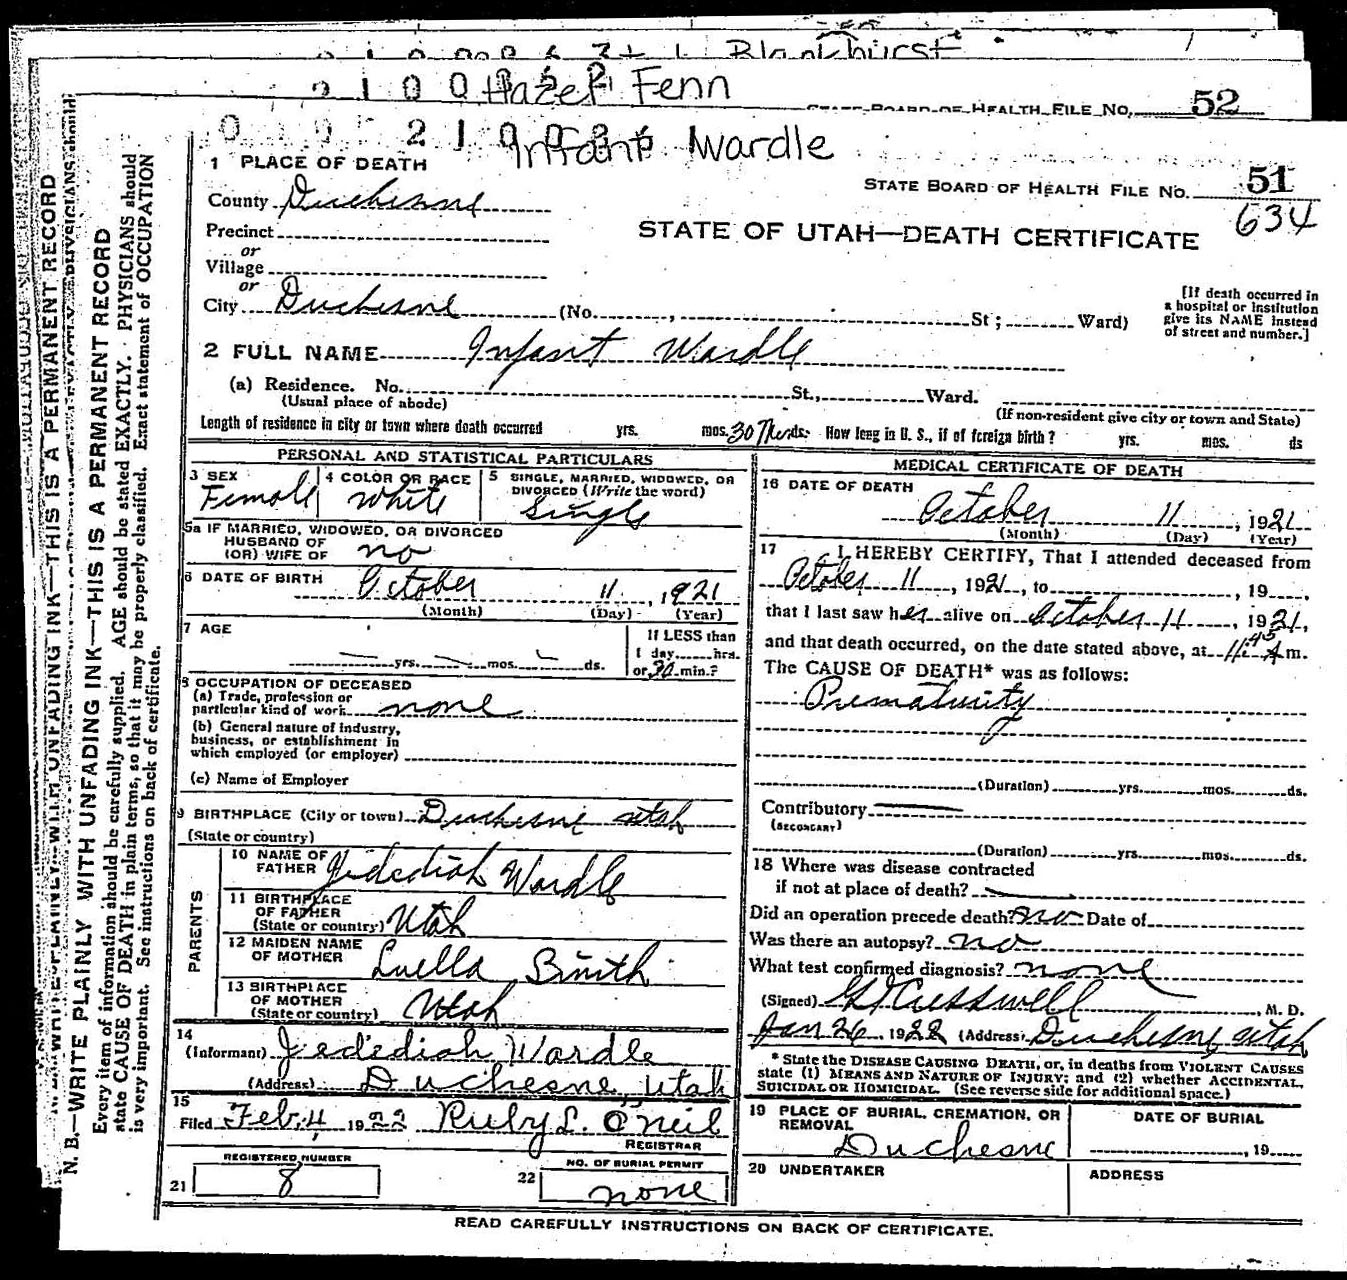 Blankhurst
Hazel Fenn
STATE BOARD OF HEALTH FILE No. 52
Infant Wardle
1 PLACE OF DEATH
STATE BOARD OF HEALTH FILE No. 51
634
County Duchesne
Precinct
STATE OF UTAH—DEATH CERTIFICATE
or
Village
or
City Duchesne (No. , St ; Ward)
[If death occurred in
a hospital or institution
give its NAME instead
of street and number.]
2 FULL NAME Infant Wardle
(a) Residence. No. St., Ward.
(Usual place of abode)
(If non-resident give city or town and State)
Length of residence in city or town where death occurred yrs. mos. 30 ds. How long in U. S., if of foreign birth ? yrs. mos. ds
PERSONAL AND STATISTICAL PARTICULARS
3 SEX
Female
4 COLOR OR RACE
White
5 SINGLE, MARRIED, WIDOWED, OR
DIVORCED (Write the word)
Single
5a IF MARRIED, WIDOWED, OR DIVORCED
HUSBAND OF
(OR) WIFE OF no
6 DATE OF BIRTH October 11, 1921
(Month) (Day) (Year)
7 AGE
yrs. mos. ds.
If LESS than
1 day, hrs.
or 30 min.?
8 OCCUPATION OF DECEASED
(a) Trade, profession or
particular kind of work none
(b) General nature of industry,
business, or establishment in
which employed (or employer)
(c) Name of Employer
9 BIRTHPLACE (City or town) Duchesne utah
(State or country)
PARENTS
10 NAME OF
FATHER Jedediah Wardle
11 BIRTHPLACE
OF FATHER
(State or country) Utah
12 MAIDEN NAME
OF MOTHER Luella Smith
13 BIRTHPLACE
OF MOTHER
(State or country) Utah
14
(Informant) Jedediah Wardle
(Address) Duchesne, utah
15
Filed Feb. 4, 1922 Ruby L. O'Neil
REGISTRAR
REGISTERED NUMBER
21 8
NO. OF BURIAL PERMIT
22 none
MEDICAL CERTIFICATE OF DEATH
16 DATE OF DEATH
October 11, 1921
(Month) (Day) (Year)
17 I HEREBY CERTIFY, That I attended deceased from
October 11, 1921, to , 19 ,
that I last saw her alive on October 11, 1921,
and that death occurred, on the date stated above, at 11:45 A m.
The CAUSE OF DEATH* was as follows:
Prematurity
(Duration) yrs. mos. ds.
Contributory
(SECONDARY)
(Duration) yrs. mos. ds.
18 Where was disease contracted
if not at place of death?
Did an operation precede death? no Date of
Was there an autopsy? no
What test confirmed diagnosis? none
(Signed) , M. D.
Jan 26 1922 (Address) Duchesne, utah
* State the DISEASE CAUSING DEATH, or, in deaths from VIOLENT CAUSES
state (1) MEANS AND NATURE OF INJURY; and (2) whether ACCIDENTAL,
SUICIDAL OR HOMICIDAL. (See reverse side for additional space.)
19 PLACE OF BURIAL, CREMATION, OR
REMOVAL
Duchesne
DATE OF BURIAL
, 19
20 UNDERTAKER
ADDRESS
READ CAREFULLY INSTRUCTIONS ON BACK OF CERTIFICATE.
N. B.—WRITE PLAINLY WITH UNFADING INK—THIS IS A PERMANENT RECORD
Every item of information should be carefully supplied. AGE should be stated EXACTLY. PHYSICIANS should
state CAUSE OF DEATH in plain terms, so that it may be properly classified. Exact statement of OCCUPATION
is very important. See instructions on back of certificate.